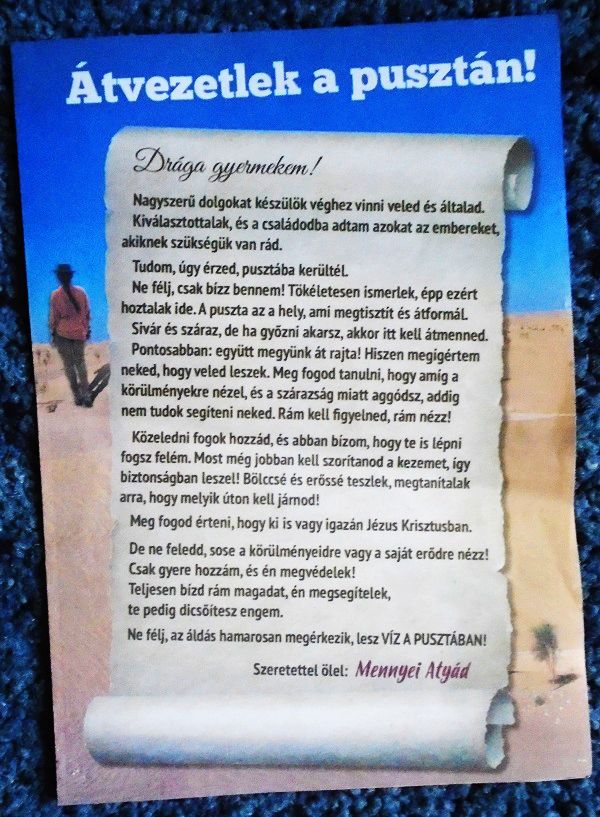 Átvezetlek a pusztán!
Drága gyermekem!
Nagyszerű dolgokat készülök véghez vinni veled és általad.
Kiválasztottalak, és a családodba adtam azokat az embereket,
akiknek szükségük van rád.
Tudom, úgy érzed, pusztába kerültél.
Ne félj, csak bízz bennem! Tökéletesen ismerlek, épp ezért
hoztalak ide. A puszta az a hely, ami megtisztít és átformál.
Sivár és száraz, de ha győzni akarsz, akkor itt kell átmenned.
Pontosabban: együtt megyünk át rajta! Hiszen megígértem
neked, hogy veled leszek. Meg fogod tanulni, hogy amíg a
körülményekre nézel, és a szárazság miatt aggódsz, addig
nem tudok segíteni neked. Rám kell figyelned, rám nézz!
Közeledni fogok hozzád, és abban bízom, hogy te is lépni
fogsz felém. Most még jobban kell szorítanod a kezemet, így
biztonságban leszel! Bölccsé és erőssé teszlek, megtanítalak
arra, hogy melyik úton kell járnod!
Meg fogod érteni, hogy ki is vagy igazán Jézus Krisztusban.
De ne feledd, sose a körülményeidre vagy a saját erődre nézz!
Csak gyere hozzám, és én megvédelek!
Teljesen bízd rám magadat, én megsegítelek,
te pedig dicsőítesz engem.
Ne félj, az áldás hamarosan megérkezik, lesz VÍZ A PUSZTÁBAN!
Szeretettel ölel: Mennyei Atyád